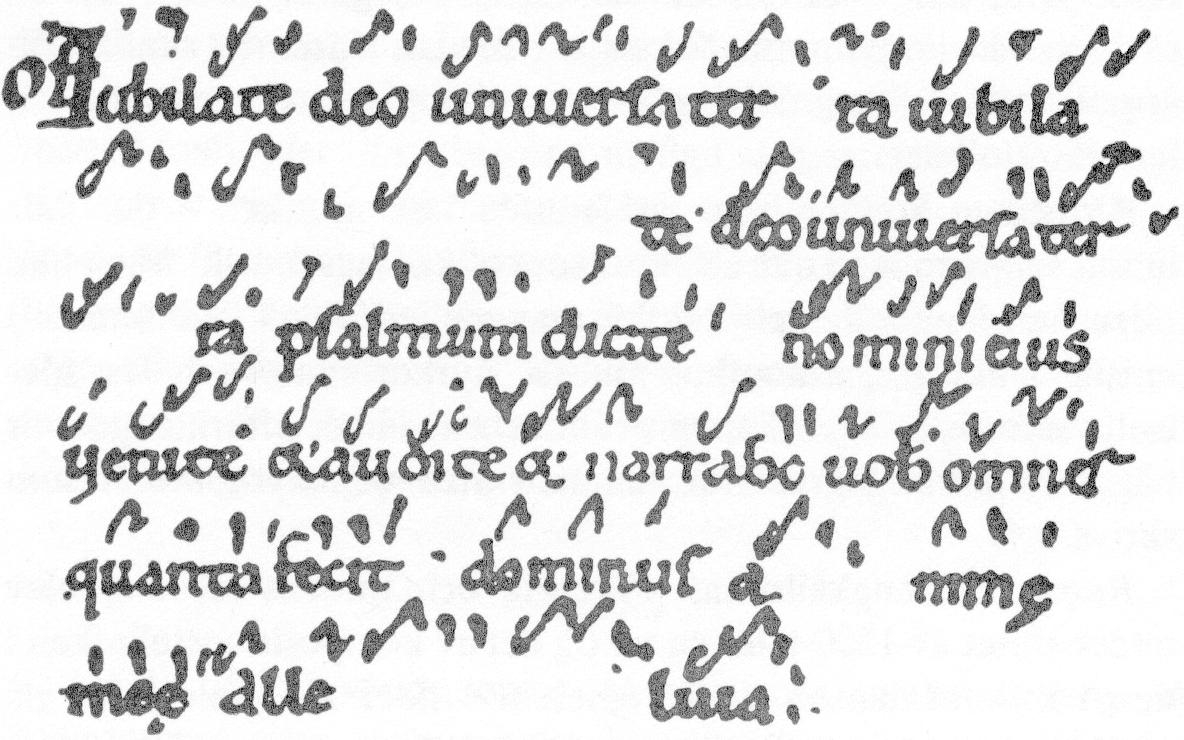 OF Iubilate deo uniuersa ter ra iubila
te deo uniuersa ter
ra psalmum dicite nomini eius
uenite & audite & narrabo uob omnes
quanta fecit dominus a nime
meae alle
luia